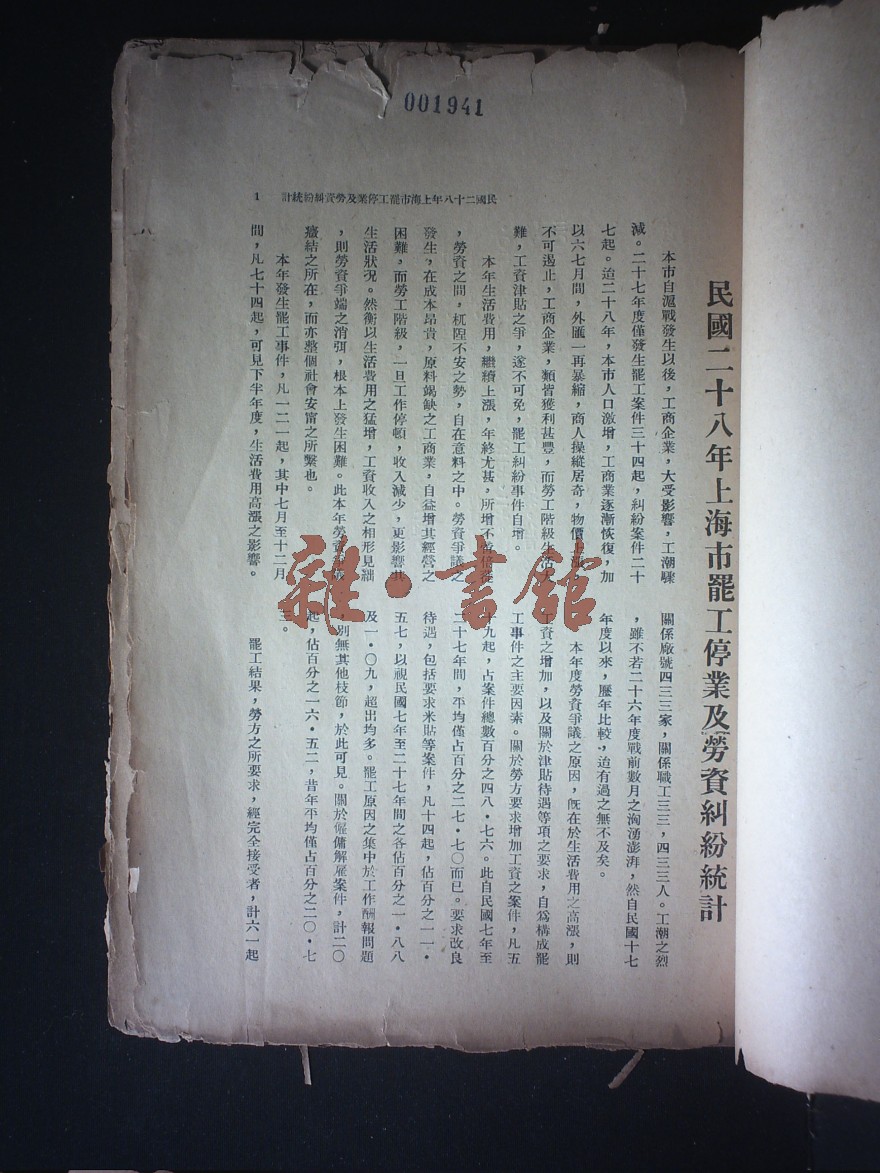 001941
民國二十八年上海市罷工停業及勞資糾紛統計 1
民國二十八年上海市罷工停業及勞資糾紛統計
本市自滬戰發生以後，工商企業，大受影響，工潮驟
減。二十七年度僅發生罷工案件三十四起，糾紛案件二十
七起。迨二十八年，本市人口激增，工商業逐漸恢復，加
以六七月間，外匯一再暴縮，商人操縱居奇，物價上漲，
不可遏止，工商企業，類皆獲利甚豐，而勞工階級生活
難，工資津貼之爭，遂不可免，罷工糾紛事件自增。
本年生活費用，繼續上漲，年終尤甚，所增不
，勞資之間，杌隉不安之勢，自在意料之中。勞資爭議之
發生，在成本昂貴，原料竭缺之工商業，自益增其經營之
困難，而勞工階級，一旦工作停頓，收入減少，更影響其
生活狀況。然衡以生活費用之猛增，工資收入之相形見絀
，則勞資爭端之消弭，根本上發生困難。此本年勞資
癥結之所在，而亦整個社會安甯之所繫也。
本年發生罷工事件，凡一二一起，其中七月至十二月
間，凡七十四起，可見下半年度，生活費用高漲之影響。
關係廠號四三三家，關係職工三三，四三三人。工潮之烈
，雖不若二十六年度戰前數月之洶湧澎湃，然自民國十七
年度以來，歷年比較，迨有過之無不及矣。
本年度勞資爭議之原因，旣在於生活費用之高漲，則
工資之增加，以及關於津貼待遇等項之要求，自爲構成罷
工事件之主要因素。關於勞方要求增加工資之案件，凡五
十九起，占案件總數百分之四八·七六。此自民國七年至
二十七年間，平均僅占百分之二七·七〇而已。要求改良
待遇，包括要求米貼等案件，凡十四起，佔百分之一一·
五七，以視民國七年至二十七年間之各佔百分之一·八八
及一·〇九，超出均多。罷工原因之集中於工作酬報問題
，別無其他枝節，於此可見。關於僱傭解雇案件，計二〇
起，佔百分之一六·五二，昔年平均僅占百分之二〇·七
三。
罷工結果，勞方之所要求，經完全接受者，計六一起
雜·書館